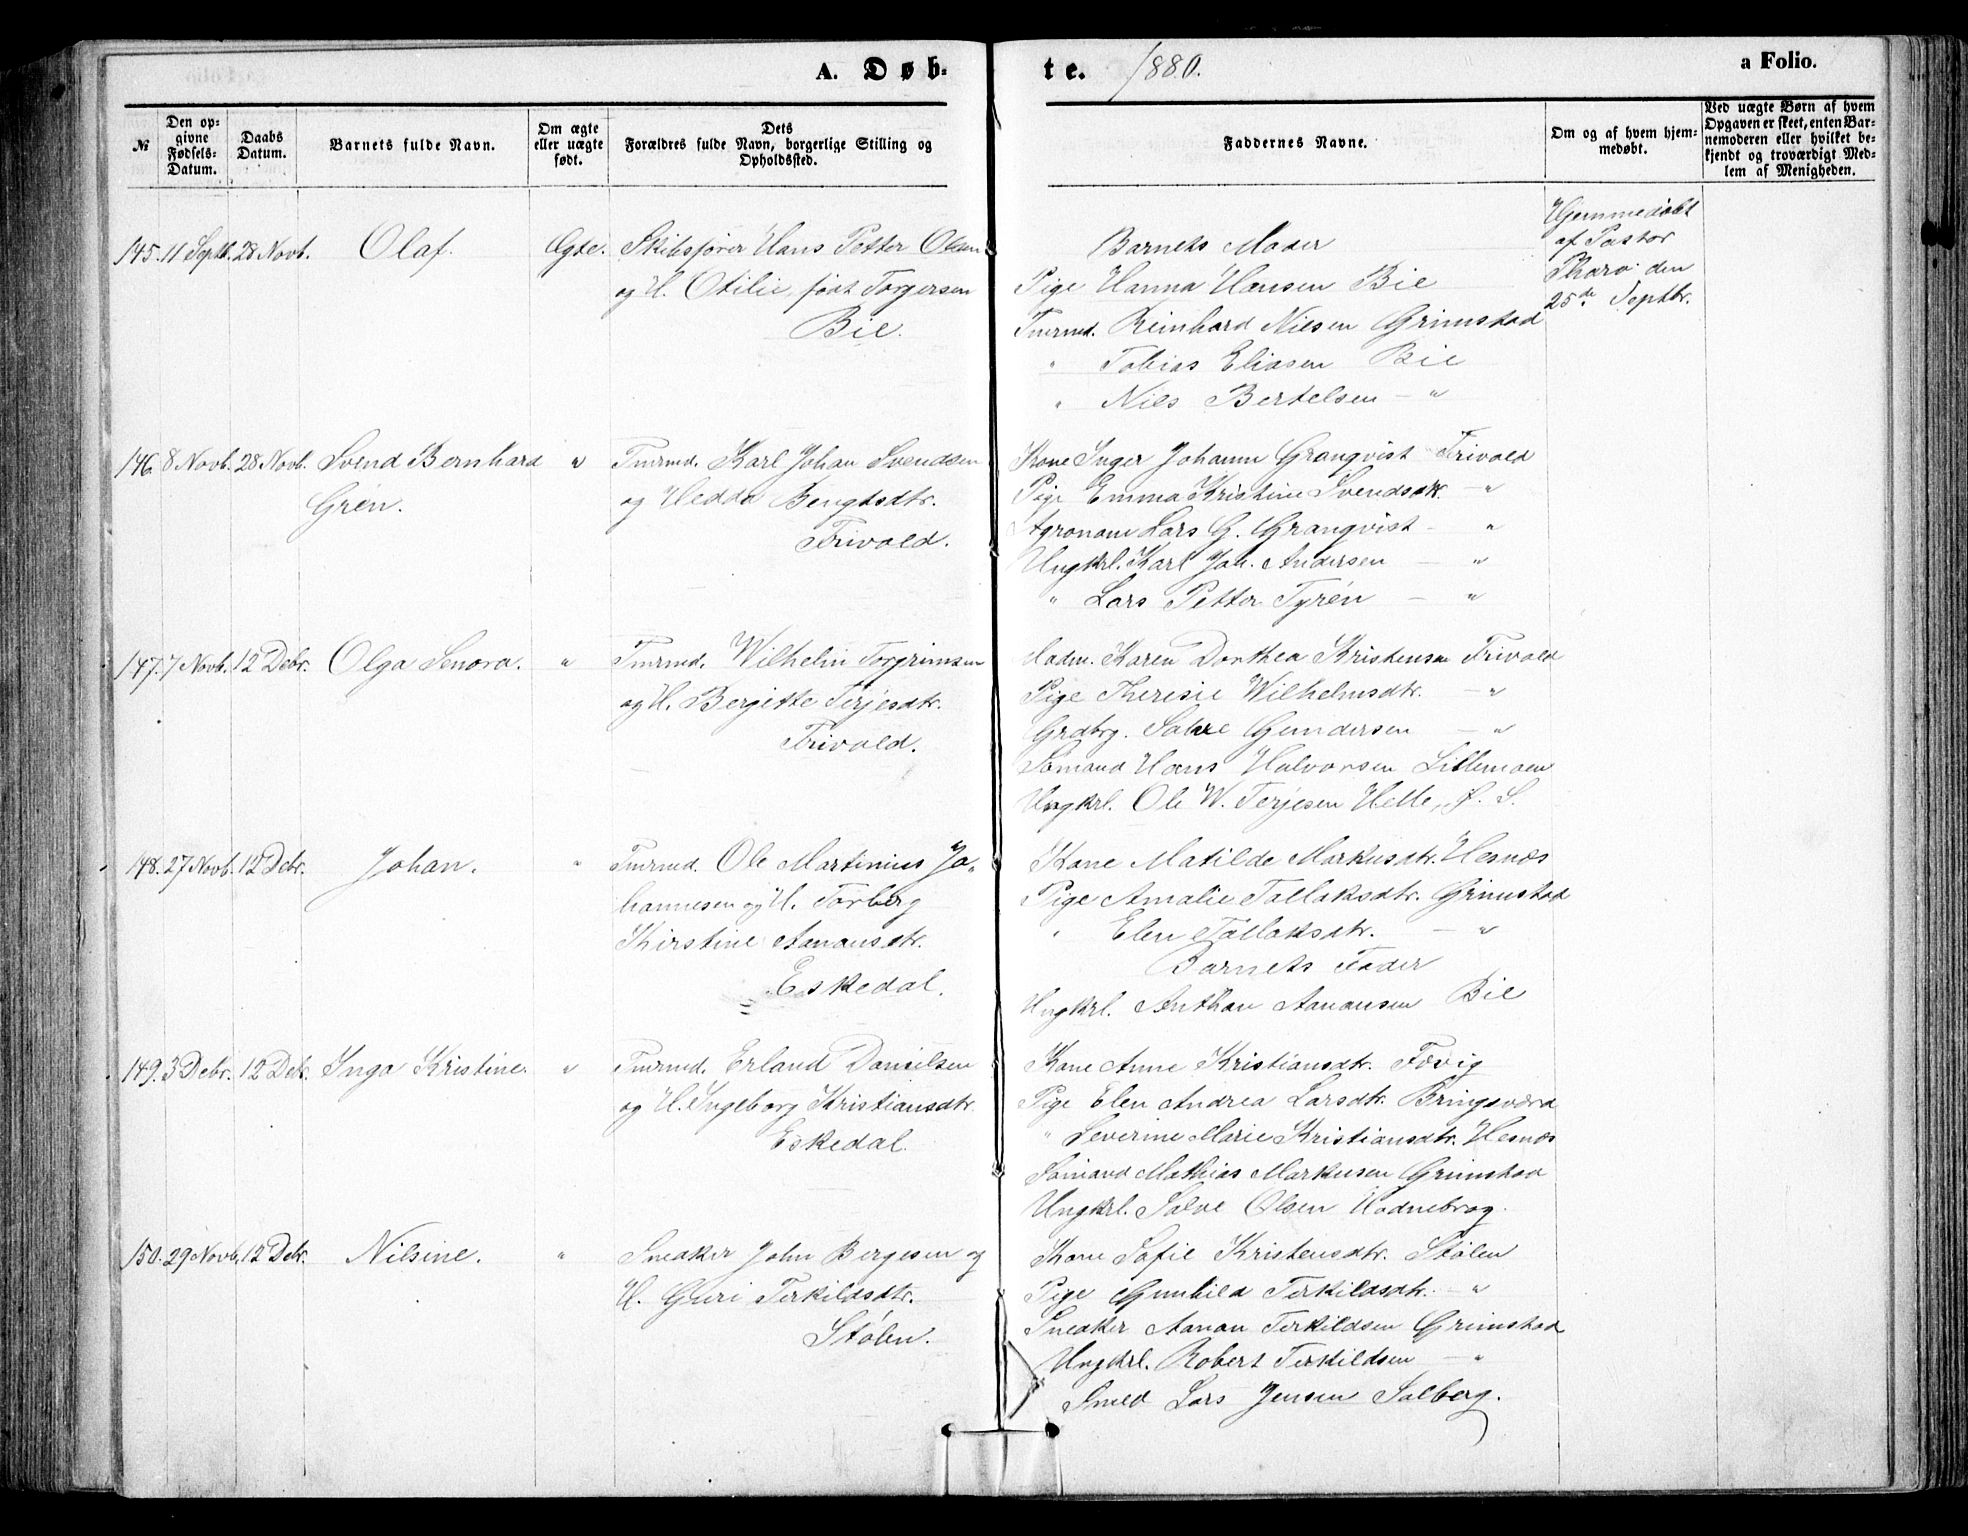 A. Døb-
te. 1880.
a Folio.
№
Den op-
givne
Fødsels-
Datum.
Daabs
Datum.
Barnets fulde Navn.
Om ægte
eller uægte
født.
Dets
Forældres fulde Navn, borgerlige Stilling og
Opholdssted.
Faddernes Navne.
Om og af hvem hjem-
medøbt.
Ved uægte Børn af hvem
Opgaven er skeet, enten Bar-
nemoderen eller hvilket be-
kjendt og troværdigt Med-
lem af Menigheden.
145. 11 Septb. 28 Novb. Olaf. Ægte. Skibsfører Hans Petter Olsen
og H. Otilie, født Torgersen
Bie.
Barnets Moder
Pige Hanna Hansen Bie
Tmrmd. Reinhard Nilsen Grimstad
" Tobias Eliasen Bie
" Nils Bertelsen — "
Hjemmedøbt
af Pastor
Tharo den
25de Septbr.
146. 8 Novb. 28 Novb. Svend Bernhard " Tmrmd. Karl Johan Svendsen
Grén. og H. Hedda Bengtsdtr.
Frivold.
Kone Inger Johanne Granqvist Frivold
Pige Emma Kristine Svendsdtr. — "
Agronom Lars G. Granqvist — "
Ungkrl. Karl Joh. Andersen — "
" Lars Petter Tyrén — "
147. 7 Novb. 12 Debr. Olga Senora. " Tmrmd. Wilhelm Torgrimsen
og H. Bergitte Terjesdtr.
Frivold.
Madm. Karen Dorthea Kristensen Frivold
Pige Theresie Wilhelmsdtr. — "
Grdbrg. Salve Gundersen — "
Sømand Hans Halvorsen Lillemoen
Ungkrl. Ole W. Terjesen Helle, Ø. S.
148. 27 Novb. 12 Debr. Johan. " Tmrmd. Ole Martinius Jo-
hannesen og H. Torberg
Kirstine Aanonsdtr.
Eskedal.
Kone Matilde Markusdtr. Hesnæs
Pige Amalie Tallaksdtr. Grimstad
" Elen Tallaksdtr. — "
Barnets Fader
Ungkrl. Anthon Aanonsen Bie
149. 3 Debr. 12 Debr. Inga Kristine. " Tmrmd. Erland Danielsen
og H. Ingeborg Kristiansdtr.
Eskedal.
Kone Anne Kristiansdtr. Fævig
Pige Elen Andrea Larsdtr. Bringsværd
" Severine Marie Kristiansdtr. Hesnæs
Sømand Mathias Markusen Grimstad
Ungkrl. Salve Olsen Hodnebrog.
150. 29 Novb. 12 Debr. Nilsine. " Snedker John Bergesen og
H. Guri Terkildsdtr.
Stølen.
Kone Sofie Kristensdtr. Stølen
Pige Gunhild Terkildsdtr. — "
Snedker Aanon Terkildsen Grimstad
Ungkrl. Robert Terkildsen — "
Smed Lars Jensen Salberg.